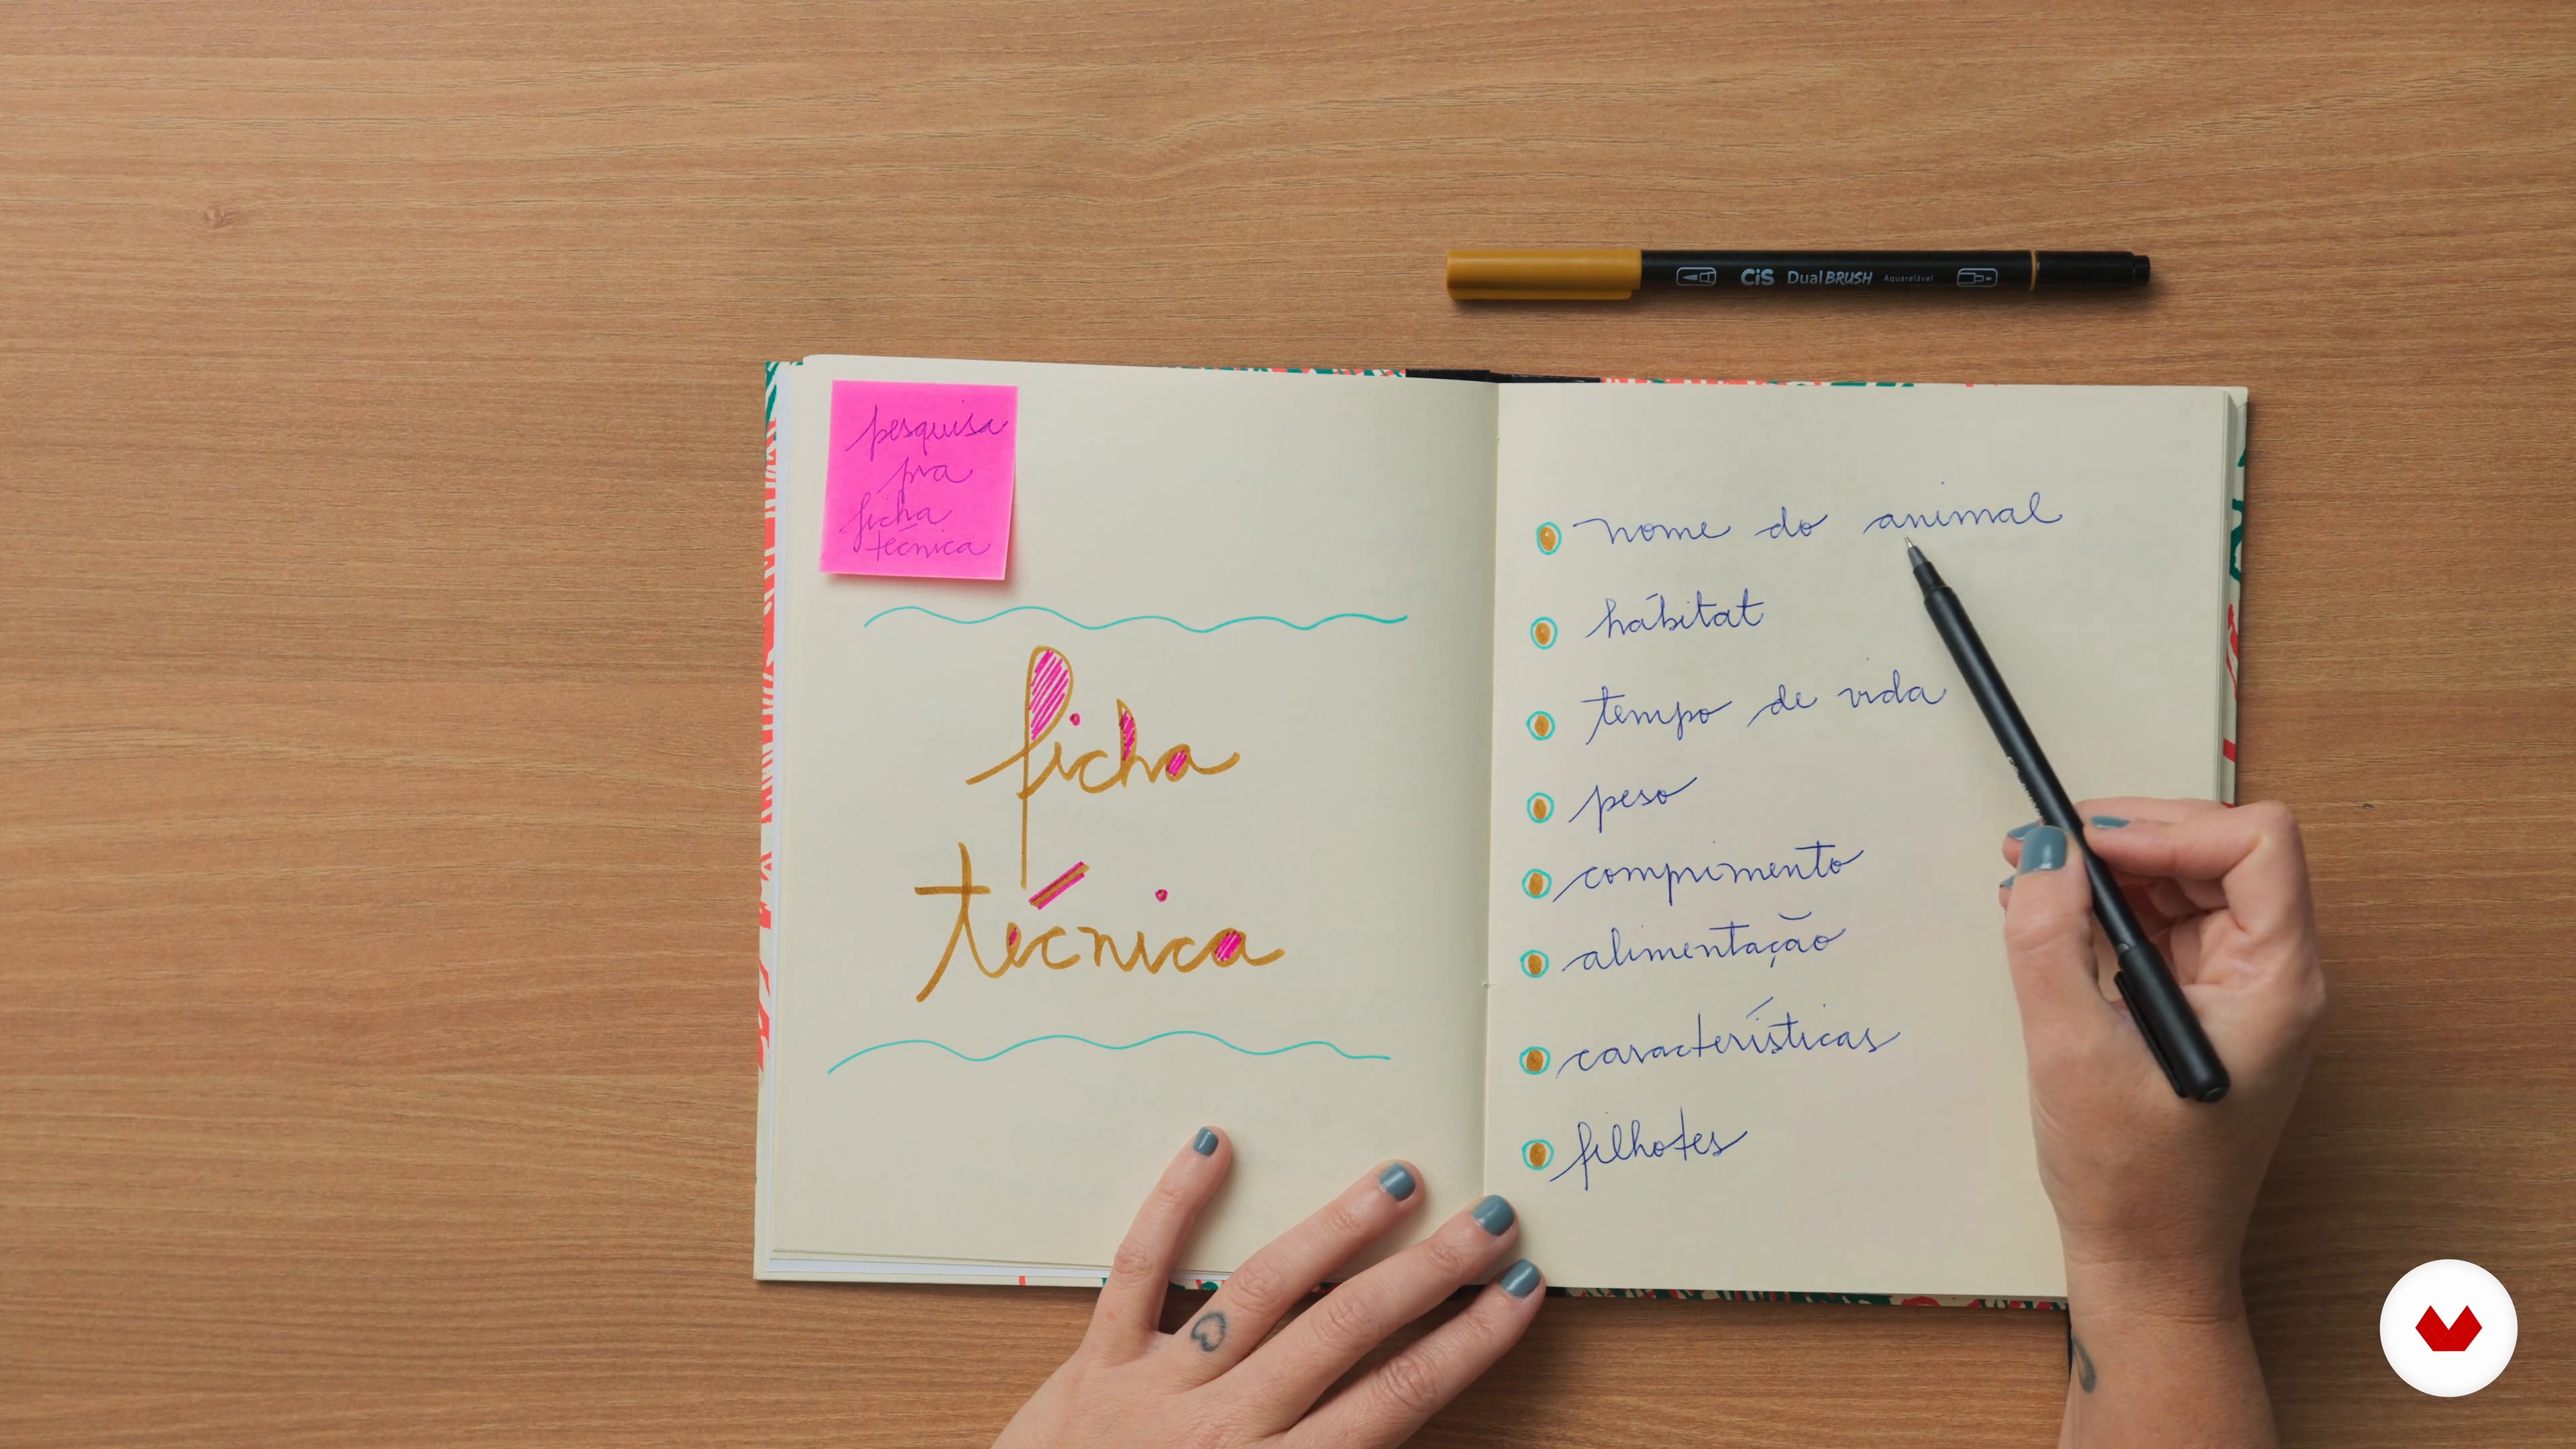 CiS Dual BRUSH Aquarelável
pesquisa
pra
ficha
técnica
ficha
técnica
nome do animal
hábitat
tempo de vida
peso
comprimento
alimentação
características
filhotes